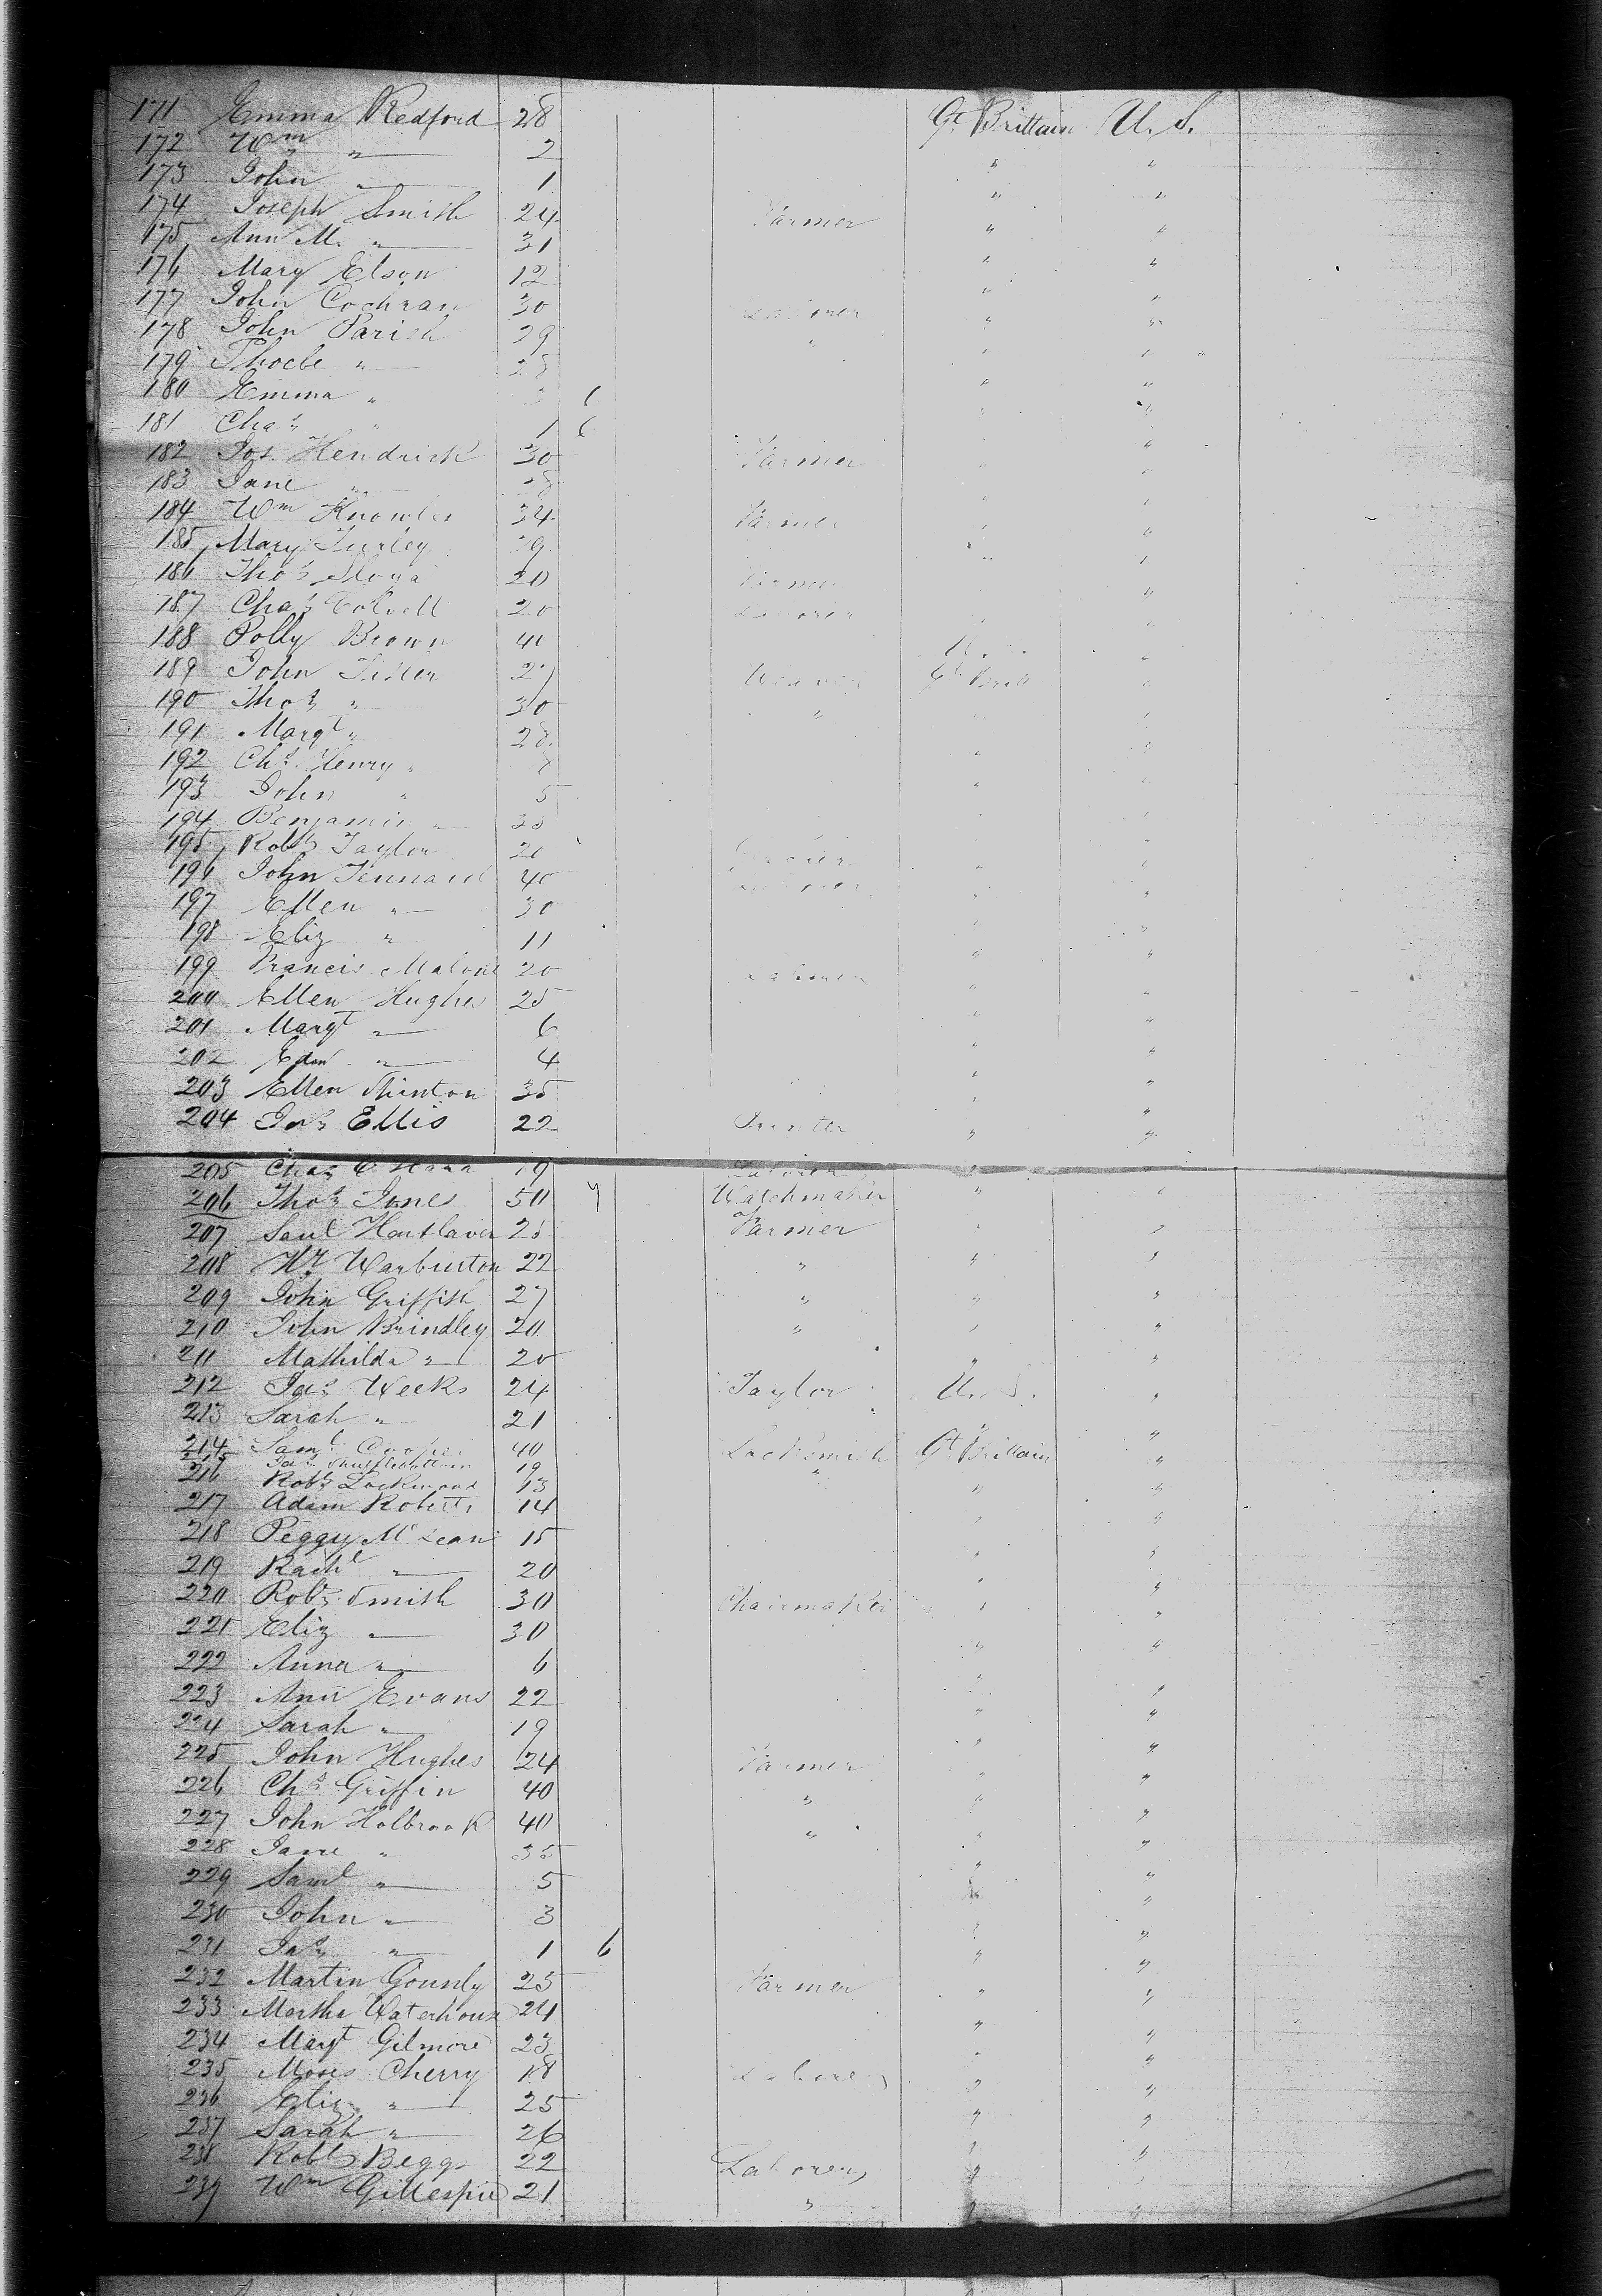 171 Emma Redford 28 Gt Brittain U. S.
172 Wm " 2 " "
173 John " 1 " "
174 Joseph Smith 24 Farmer " "
175 Ann M. " 31 " "
176 Mary Elson 12 " "
177 John Cochran 30 Laborer " "
178 John Parish 29 " " "
179 Phoebe " 28 " "
180 Emma " 3 6 " "
181 Chas " 1 6 " "
182 Jos. Hendrick 30 Farmer " "
183 Jane " 28 " "
184 Wm Knowles 34 Farmer " "
185 Mary Turley " "
186 Thos 20 Farmer " "
187 Chas 20 Laborer " "
188 Polly Brown 40 "
189 John 27 Weaver Gt Britt "
190 Thos " 30 " " "
191 Margt " 28 " "
192 Chs Henry " " "
193 John " 5 " "
194 Benjamin " " "
195 Robt Taylor 20 " "
196 John Tennard 40 Laborer " "
197 Ellen " 30 " "
198 Eliz " 11 " "
199 Francis Malone 20 Laborer " "
200 Ellen Hughes 25 " "
201 Margt " 6 " "
202 Edw " 4 " "
203 Ellen Thinton 35 " "
204 Jas Ellis 22 Printer " "
205 Chas O Hara 19 Laborer " "
206 Thos Jones 50 Watchmaker " "
207 Saml 25 Farmer " "
208 Hy Warburton 22 " " "
209 John Griffith 27 " " "
210 John Brindley 20 " " "
211 Mathilda " 20 " "
212 Jas Weeks 24 Taylor U. S. "
213 Sarah " 21 " "
214 Saml Cooper 40 Locksmith Gt Brittain "
215 Jas Shufflebottom 19 " " "
216 Robt Lockwood 13 " "
217 Adam Roberts 14 " "
218 Peggy McLean 15 " "
219 Rachl " 20 " "
220 Robt Smith 30 Chairmaker " "
221 Eliz " 30 " "
222 Anna " 6 " "
223 Ann Evans 22 " "
224 Sarah " 19 " "
225 John Hughes 24 Farmer " "
226 Chs Griffin 40 " " "
227 John Holbrook 40 " " "
228 Jane " 35 " "
229 Saml " 5 " "
230 John " 3 " "
231 Jas " 1 6 " "
232 Martin Gounly 25 Farmer " "
233 Martha Waterhouse 24 " "
234 Margt Gilmore 23 " "
235 Moses Cherry 18 Laborer " "
236 Eliz " 25 " "
237 Sarah " 26 " "
238 Robt Beggs 22 Laborer " "
239 Wm Gillespie 21 " " "